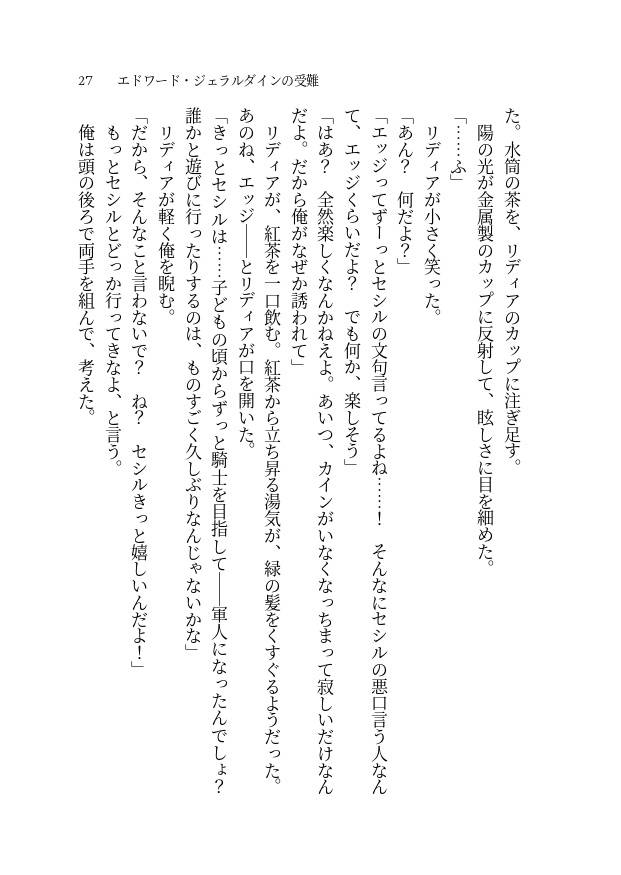 27 エドワード・ジェラルダインの受難
た。水筒の茶を、リディアのカップに注ぎ足す。
　陽の光が金属製のカップに反射して、眩しさに目を細めた。
「……ふ」
　リディアが小さく笑った。
「あん？　何だよ？」
「エッジってずーっとセシルの文句言ってるよね……！　そんなにセシルの悪口言う人なん
て、エッジくらいだよ？　でも何か、楽しそう」
「はあ？　全然楽しくなんかねえよ。あいつ、カインがいなくなっちまって寂しいだけなん
だよ。だから俺がなぜか誘われて」
　リディアが、紅茶を一口飲む。紅茶から立ち昇る湯気が、緑の髪をくすぐるようだった。
あのね、エッジ――とリディアが口を開いた。
「きっとセシルは……子どもの頃からずっと騎士を目指して――軍人になったんでしょ？
誰かと遊びに行ったりするのは、ものすごく久しぶりなんじゃないかな」
　リディアが軽く俺を睨む。
「だから、そんなこと言わないで？　ね？　セシルきっと嬉しいんだよ！」
　もっとセシルとどっか行ってきなよ、と言う。
　俺は頭の後ろで両手を組んで、考えた。